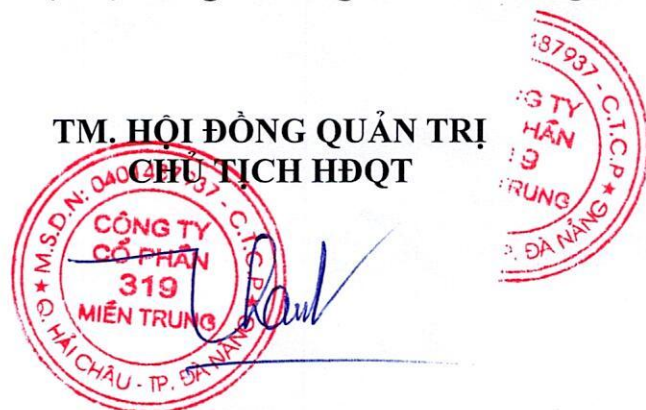 TM. HỘI ĐỒNG QUẢN TRỊ
CHỦ TỊCH HĐQT
M.S.D.N: 0401487937 - C.T.C.P
CÔNG TY
CỔ PHẦN
319
MIỀN TRUNG
Q. HẢI CHÂU - TP. ĐÀ NẴNG
487937 - C.T.C.P
G TY
HẦN
9
RUNG
P. ĐÀ NẴNG